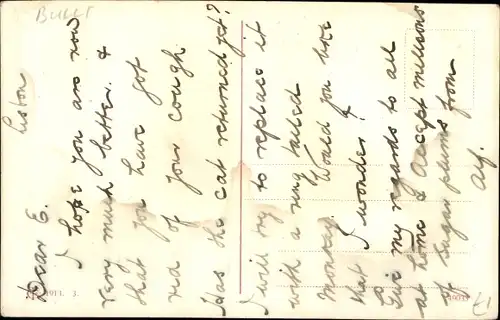 Liston
Dear E.
I hope you are now
very much better &
that you have got
rid of your cough
Has the cat returned yet?
I will try to replace it
with a ring tailed
monkey. Would you like
that I wonder?
Give my regards to all
at home & accept millions
of sugar plums from
BULLT
1911. 3.
£1